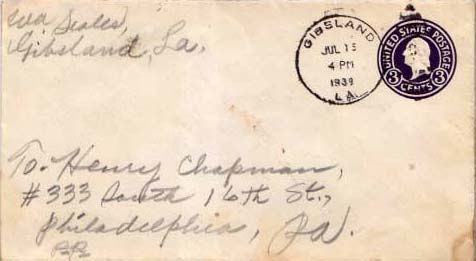 Eva Scales,
Gibsland, La.
GIBSLAND
JUL 15
4 PM
1939
LA.
UNITED STATES POSTAGE
3 CENTS 3
To: Henry Chapman,
#333 South 16th St.,
Philadelphia, Pa.